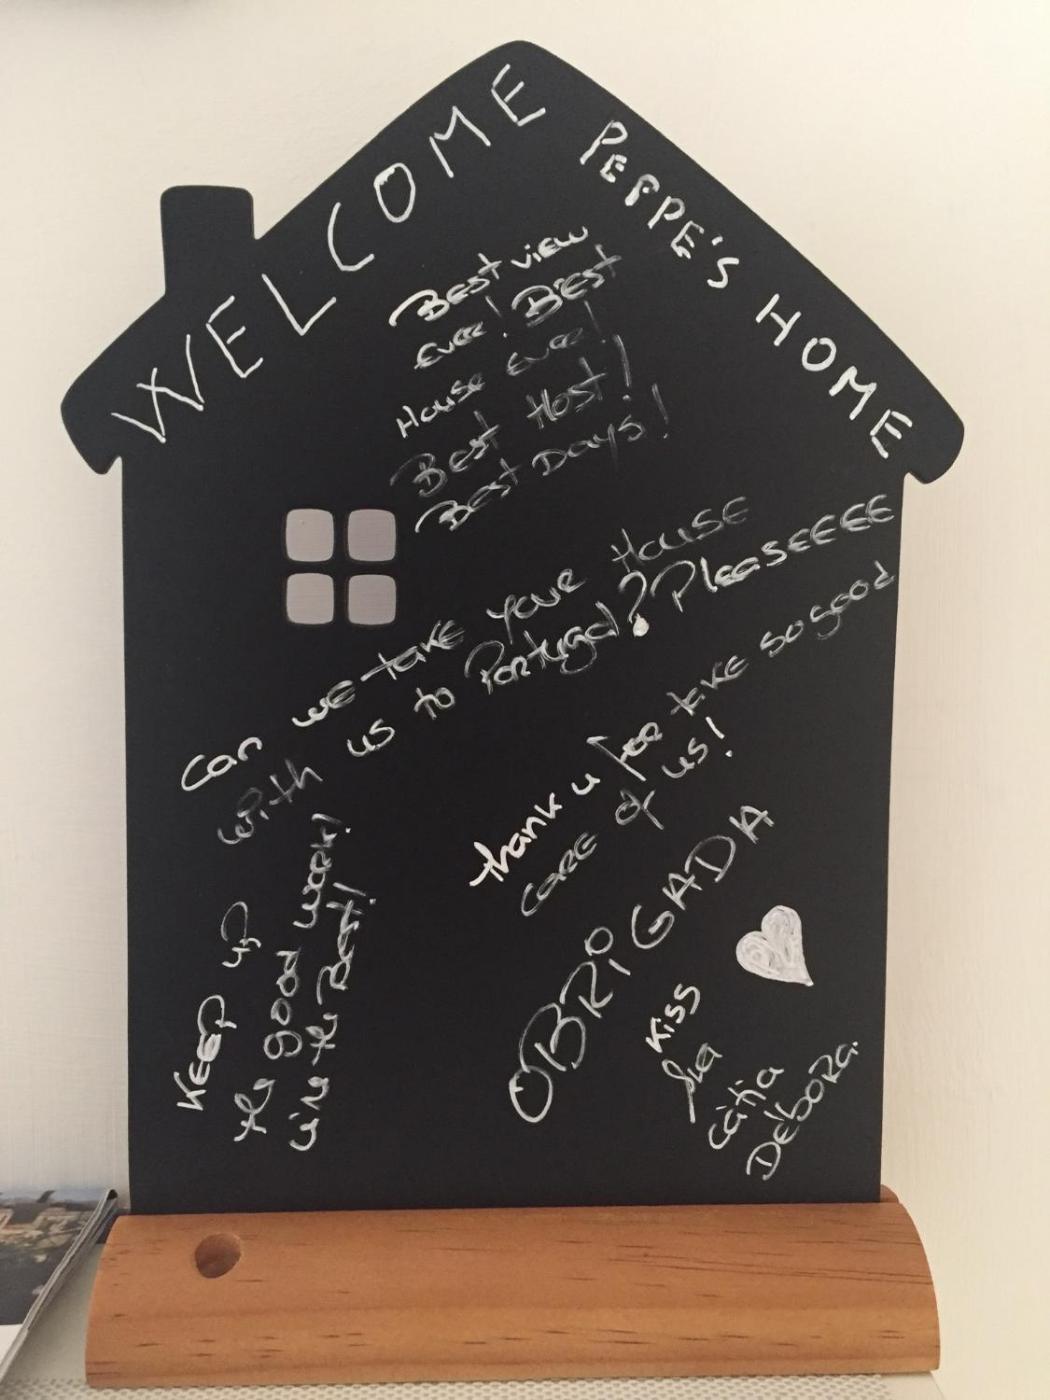 WELCOME
PEPPE'S HOME
Best view
ever! BEST
House ever!
Best Host!
Best Days!
Can we take your House
with us to Portugal? Pleaseeeee
thank u for take so good
care of us!
OBRIGADA
Keep up
the good work!
the Best!
Kiss
Cátia
Débora.